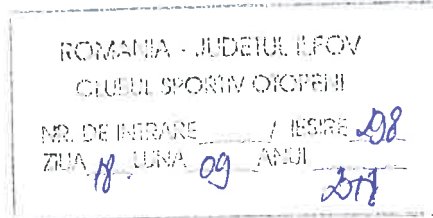 ROMANIA - JUDETUL ILFOV
CLUBUL SPORTIV OTOPENI
NR. DE INTRARE______/ IESIRE 298
ZIUA 18. LUNA 09 ANUL